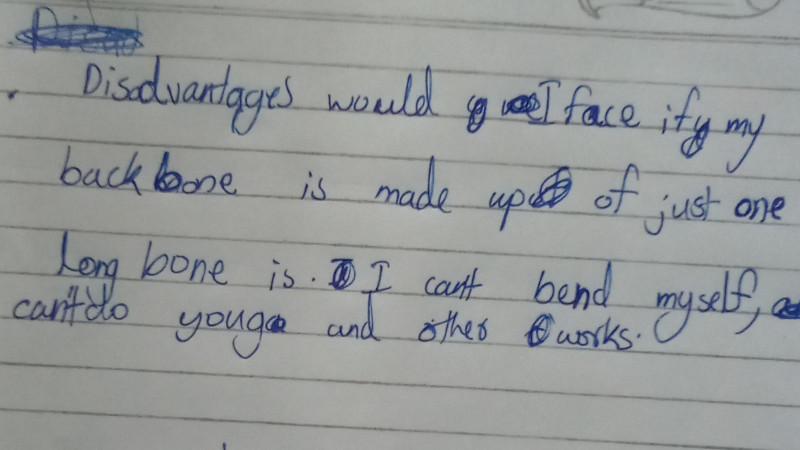 Disadvantages would I face if my
back bone is made up of just one
Long bone is. I can't bend myself,
can't do youga and other works.